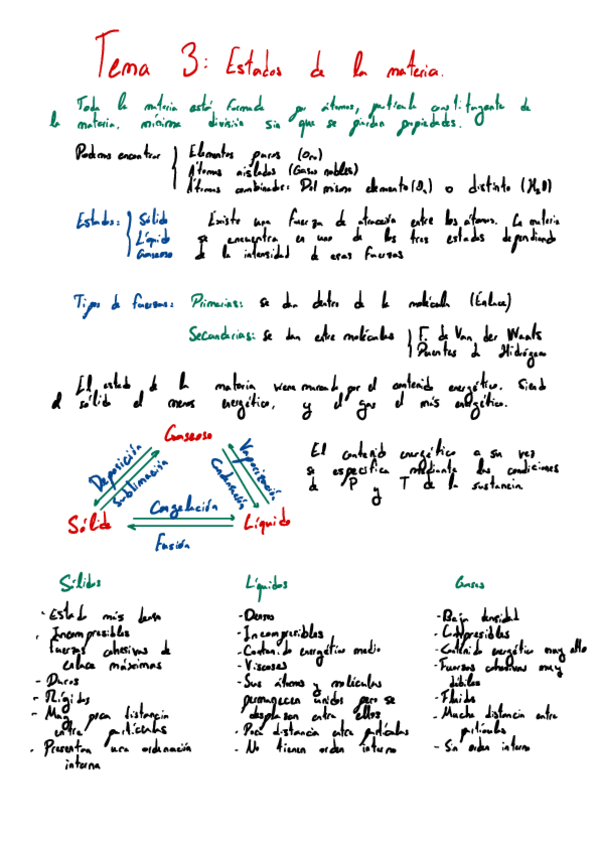 Tema 3: Estados de la materia.
Toda la materia está formada por átomos, partícula constituyente de
la materia, mínima división sin que se pierdan propiedades.
Podemos encontrar Elementos puros (Oro)
Átomos aislados (Gases nobles)
Átomos combinados: Del mismo elemento (O₂) o distinto (H₂O)
Estados: Sólido Existe una fuerza de atracción entre los átomos. La materia
Líquido se encuentra en uno de los tres estados dependiendo
Gaseoso de la intensidad de esas fuerzas
Tipos de fuerzas: Primarias: se dan dentro de la molécula (Enlace)
Secundarias: se dan entre moléculas F. de Van der Waals
Puentes de Hidrógeno
El estado de la materia viene marcado por el contenido energético. Siendo
el sólido el menos energético, y el gas el más energético.
Gaseoso
Deposición
Sublimación
Vaporización
Condensación
Sólido
Congelación
Líquido
Fusión
El contenido energético a su vez
se especifica mediante las condiciones
de P y T de la sustancia
Sólidos
- Estado más denso
- Incompresibles
Fuerzas cohesivas de
enlace máximas
- Duros
- Rígidos
- Muy poca distancia
entre partículas
- Presentan una ordenación
interna
Líquidos
- Densos
- Incompresibles
- Contenido energético medio
- Viscosos
- Sus átomos y moléculas
permanecen unidos pero se
desplazan entre ellos
- Poca distancia entre partículas
- No tienen orden interno
Gases
- Baja densidad
- Compresibles
- Contenido energético muy alto
- Fuerzas cohesivas muy
débiles
- Fluidos
- Mucha distancia entre
partículas
- Sin orden interno